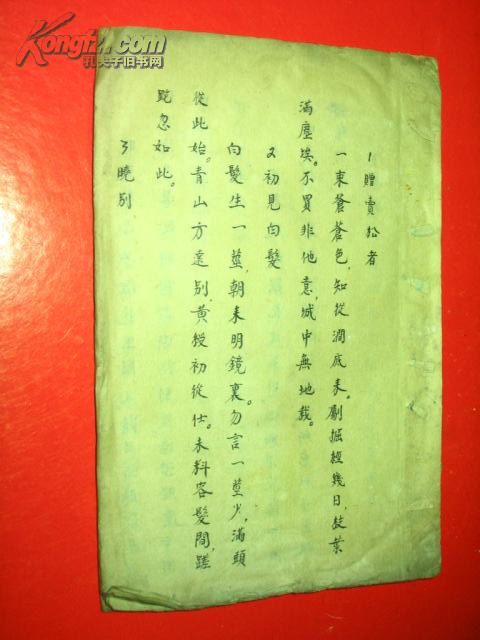 Kongfz.com
孔夫子旧书网
1 贈賣松者
一束蒼蒼色，知從澗底来。劚掘經幾日，枝葉
滿塵埃。不買非他意，城中無地栽。
2 初見白髮
白髮生一莖，朝来明鏡裏。勿言一莖少，滿頭
從此始。青山方遠別，黃綬初從仕。未料容髮間，蹉
跎忽如此。
3 曉別